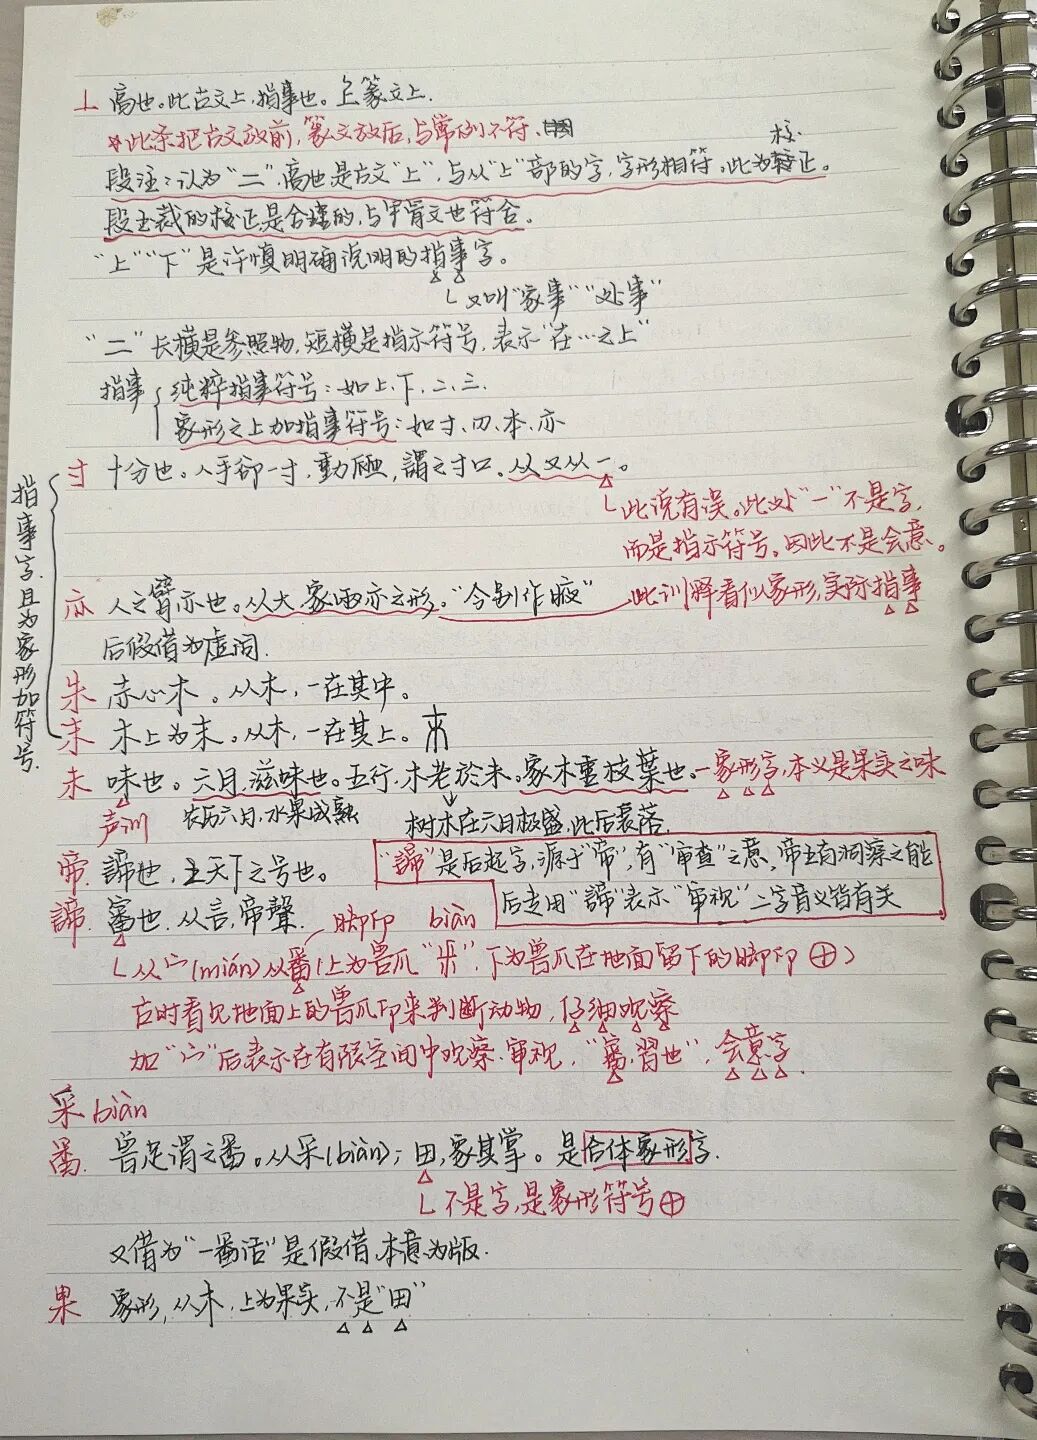 丄 高也。此古文上,指事也。 篆文上.
*此条把古文放前,篆文放后,与常例不符.
校.
段注:认为“二”,高也是古文“上”,与从“上”部的字,字形相符,此为校正。
段玉裁的校正是合理的,与甲骨文也符合.
“上”“下”是许慎明确说明的指事字。
又叫“象事”“处事”
“二”长横是参照物,短横是指示符号,表示“在…之上”
指事 纯粹指事符号:如上、下、二、三.
象形之上加指事符号:如寸、刃、本、亦
指事字,且为象形加符号.
寸 十分也。人手卻一寸,動脈,謂之寸口。从又从一。
此说有误。此处“一”不是字,
而是指示符号。因此不是会意。
亦 人之臂亦也。从大,象兩亦之形。“今别作腋” 此训释看似象形,实际指事
后假借为虚词.
朱 赤心木。从木,一在其中。
末 木上为末。从木,一在其上。
未 味也。六月,滋味也。五行,木老於未。象木重枝葉也。一象形字,本义是果实之味
声训 农历六月,水果成熟 树木在六月极盛,此后衰落.
帝. 諦也,王天下之号也。 “諦”是后起字,源于“帝”,有“审查”之意,帝王有洞察之能
諦. 審也.从言,帝聲. 后专用“諦”表示“审视”二字音义皆有关
脚印 biàn
从“宀”(mián)从番(上为兽爪“釆”,下为兽爪在地面留下的脚印⊕)
古时看见地面上的兽爪印来判断动物,仔细观察
加“宀”后表示在有限空间中观察.审视,“審,習也”,会意字.
釆 biàn
番. 兽足谓之番。从釆(biàn);田,象其掌。是合体象形字.
不是字,是象形符号⊕
又借为“一番话”是假借,本意为版.
果 象形,从木,上为果实,不是“田”